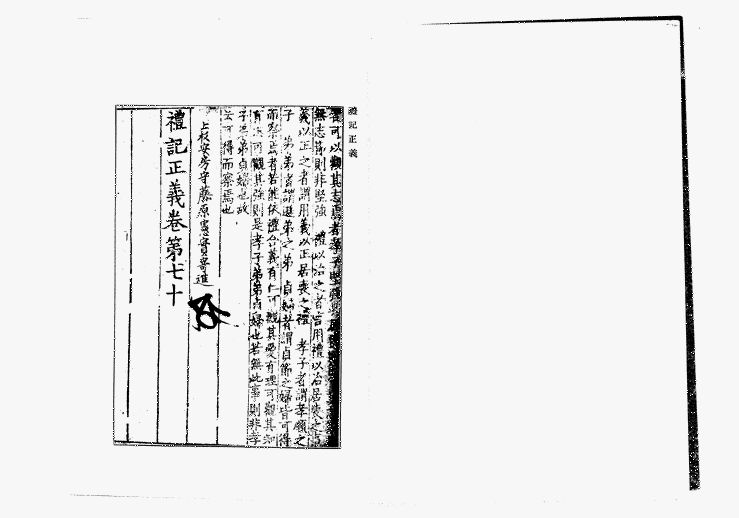 禮記正義
可以觀其志焉者孝子堅強
無志節則非堅強　禮以治之者言用禮以治居喪之
義以正之者謂用義以正居喪之禮　孝子者謂孝順之
子　弟弟者謂遜弟之弟　貞婦者謂貞節之婦皆可得
而察焉者若能依禮合義有仁可觀其愛有理可觀其知
有志可觀其強則是孝子弟弟貞婦也若無此事則非孝
子弟弟貞婦也故
云可得而察焉也
上杉安房守藤原憲實寄進
禮記正義卷第七十